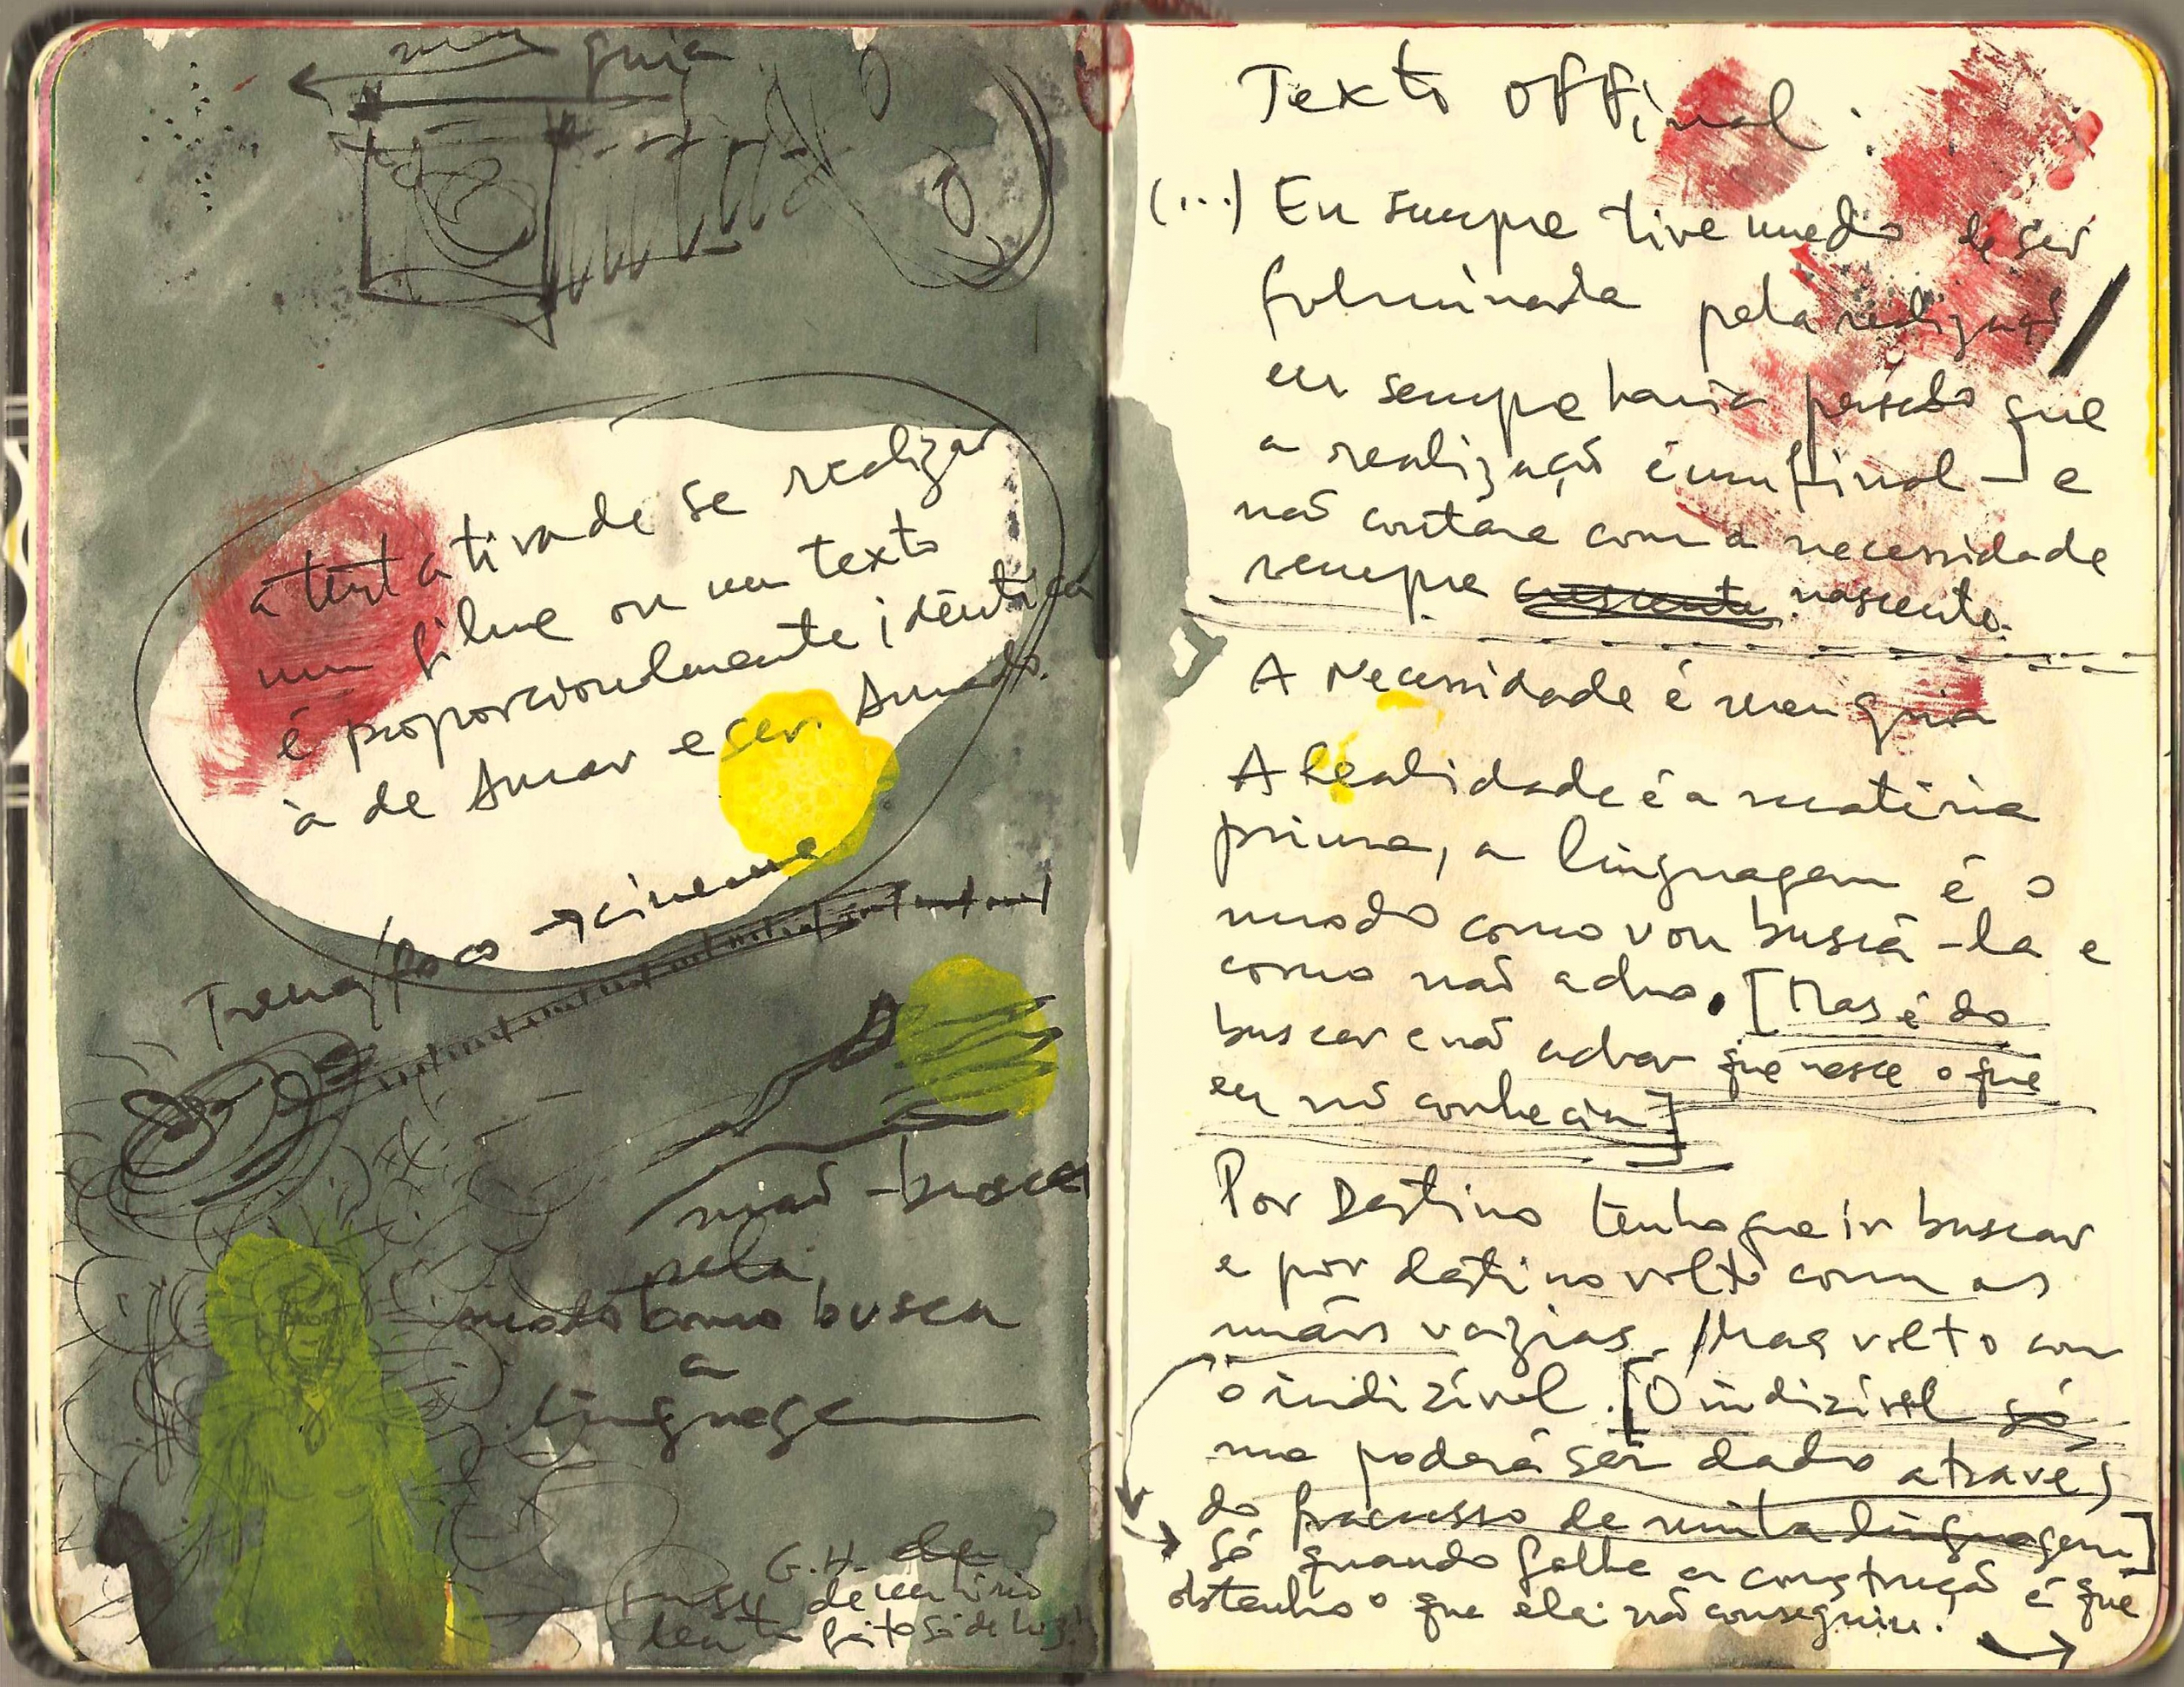 meu guia
a tentativa de se realizar
um filme ou um texto
é proporcionalmente idêntica
à de Amar e ser Amado.
Trena/foco → cinema
mão - busca
pela
modo como busca
a
linguage
G.H.
dentro feito só de luz
Texto OFFinal :
(...) Eu sempre tive medo de ser
fulminada pela realização
eu sempre havia pensado que
a realização é um final — e
não contara com a necessidade
sempre crescente nascente.
A Necessidade é meu guia
A Realidade é a matéria
prima, a linguagem é o
modo como vou buscá-la e
como não acho. [Mas é do
buscar e não achar que nasce o que
eu não conhecia]
Por Destino tenho que ir buscar
e por destino volto com as
mãos vazias. / Mas volto com
o indizível. [O indizível só
me poderá ser dado através
do fracasso de minha linguagem]
Só quando falha a construção é que
obtenho o que ela não conseguiu.